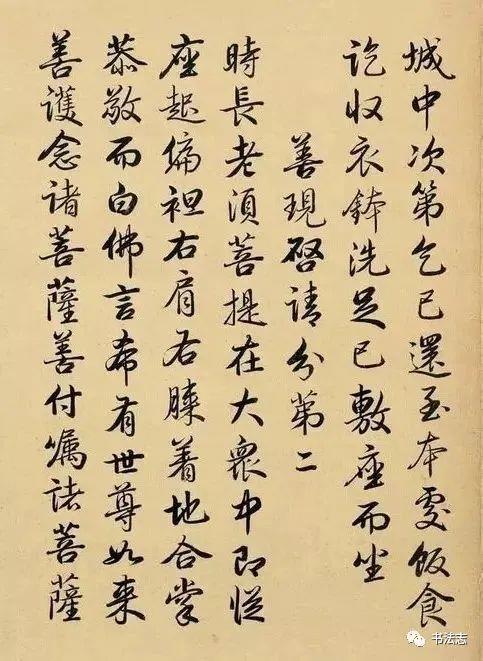 城中次第乞已還至本處飯食
訖收衣鉢洗足已敷座而坐
善現啓請分第二
時長老須菩提在大衆中即從
座起偏袒右肩右膝着地合掌
恭敬而白佛言希有世尊如来
善護念諸菩薩善付嘱諸菩薩
书法志